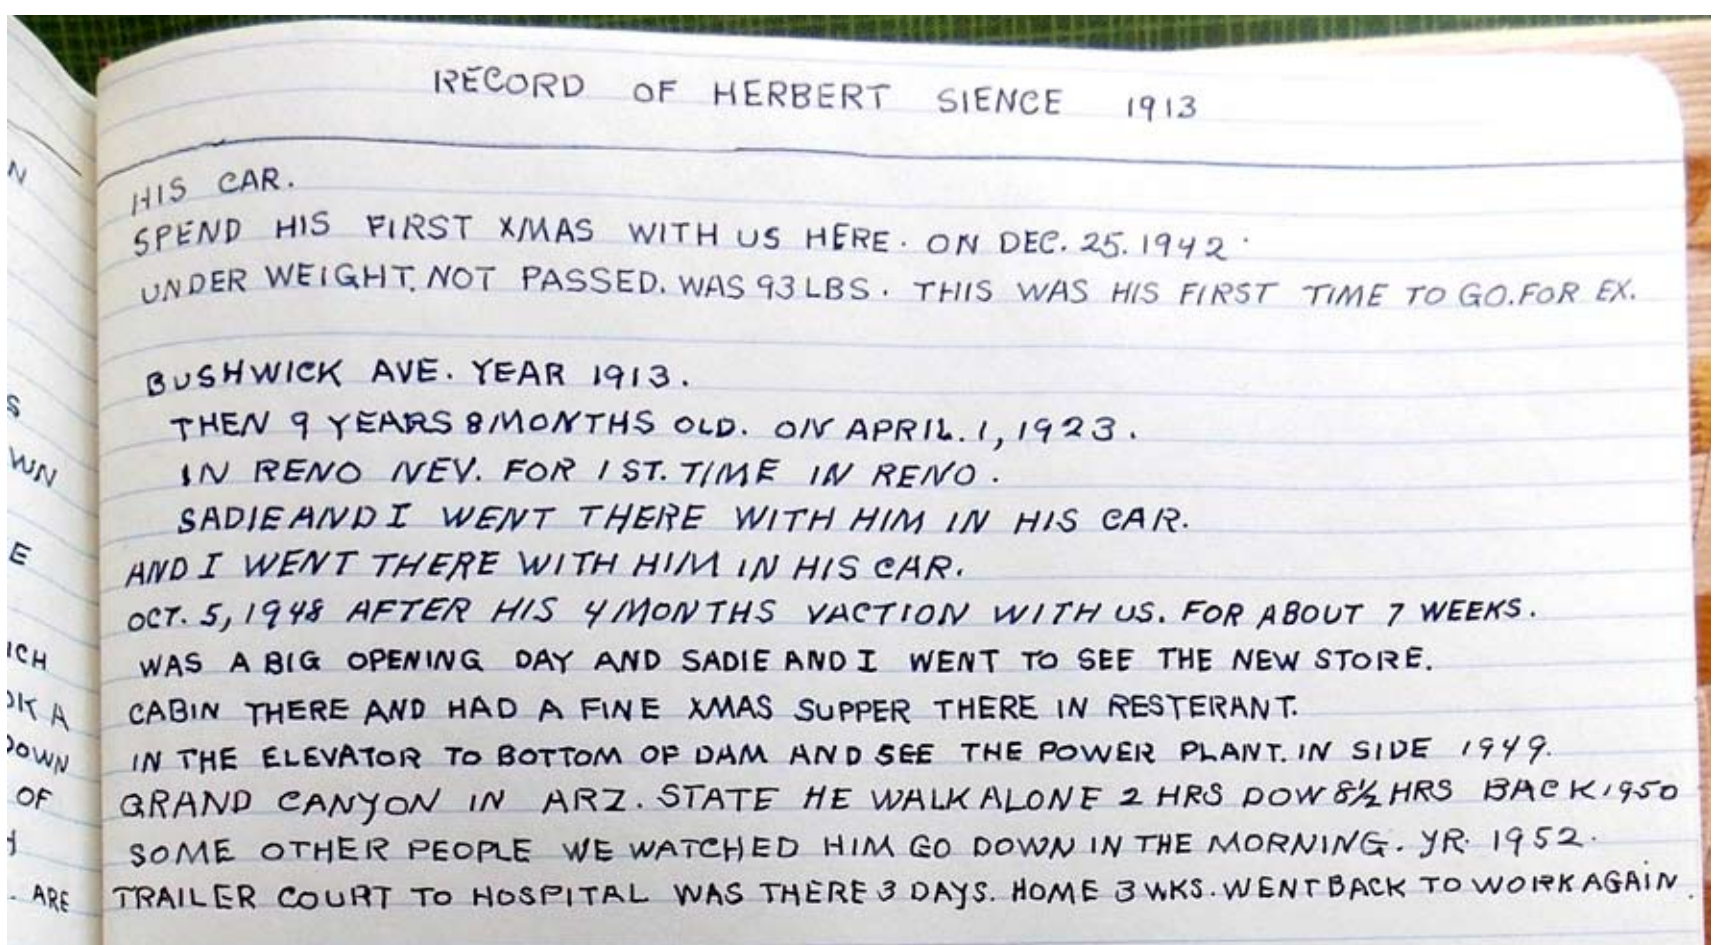 RECORD OF HERBERT SIENCE 1913
HIS CAR.
SPEND HIS FIRST XMAS WITH US HERE. ON DEC. 25. 1942.
UNDER WEIGHT. NOT PASSED. WAS 93 LBS. THIS WAS HIS FIRST TIME TO GO. FOR EX.
BUSHWICK AVE. YEAR 1913.
THEN 9 YEARS 8 MONTHS OLD. ON APRIL. 1, 1923.
IN RENO NEV. FOR 1 ST. TIME IN RENO.
SADIE AND I WENT THERE WITH HIM IN HIS CAR.
AND I WENT THERE WITH HIM IN HIS CAR.
OCT. 5, 1948 AFTER HIS 4 MONTHS VACTION WITH US. FOR ABOUT 7 WEEKS.
WAS A BIG OPENING DAY AND SADIE AND I WENT TO SEE THE NEW STORE.
CABIN THERE AND HAD A FINE XMAS SUPPER THERE IN RESTERANT.
IN THE ELEVATOR TO BOTTOM OF DAM AND SEE THE POWER PLANT. IN SIDE 1949.
GRAND CANYON IN ARZ. STATE HE WALK ALONE 2 HRS DOW 8½ HRS BACK 1950
SOME OTHER PEOPLE WE WATCHED HIM GO DOWN IN THE MORNING. YR. 1952.
TRAILER COURT TO HOSPITAL WAS THERE 3 DAYS. HOME 3 WKS. WENT BACK TO WORK AGAIN.
N
S
WN
E
ICH
OK A
DOWN
OF
ARE